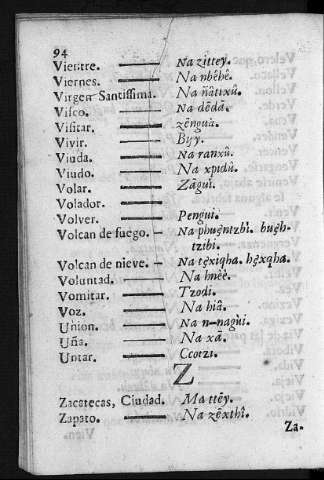 94
Vientre. — Na zittey.
Viernes. — Na nbêhê.
Virgen Santissima. — Na ñâtixû.
Visco. — Na dēdā.
Visitar. — zēnguà.
Vivir. — Bizy.
Viuda. — Na ranxû.
Viudo. — Na xpidû.
Volar. — Zāgui.
Volador. —
Volver. — Pengui.
Volcan de fuego. — Na phuēntzhi. huēh-
tzibi.
Volcan de nieve. — Na tēxiqha. hēxqha.
Voluntad. — Na hnêè.
Vomitar. — Tzodi.
Voz. — Na hiâ.
Vñion. — Na n-nagùi.
Vña. — Na xâ.
Vntar. — Ccotzi.
Z
Zacatecas, Ciudad. Ma ttēy.
Zapato. — Na zēxthî.
Za-